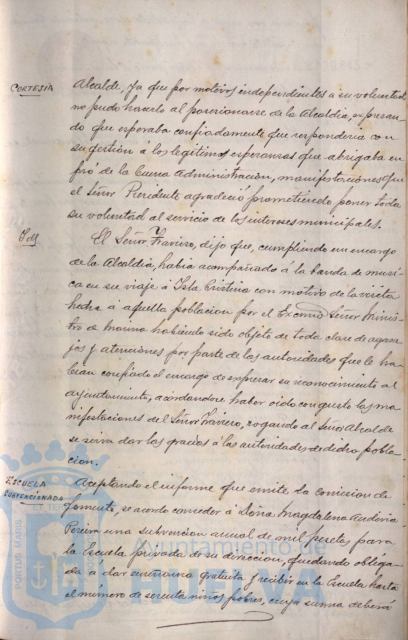 CORTESIA
Alcalde, ya que por motivos independientes a su voluntad
no pudo hacerlo al posesionarse de la Alcaldia, expresan-
do que esperaba confiadamente que responderia con
su gestión á los legitimos esperanzas que abrigaba en
pró de la buena Administración, manifestaciones que
el Señor Presidente agradeció prometiendo poner toda
su voluntad al servicio de los intereses municipales.
Id
El Señor dijo que, cumpliendo un encargo
de la Alcaldia, habia acompañado á la banda de musi-
ca en su viaje á Isla Cristina con motivo de la visita
hecha á aquella poblacion por el Excmo Señor Minis-
tro de Marina habiendo sido objeto de toda clase de agasa-
jos y atenciones por parte de las autoridades que le ha-
bian confiado el encargo de expresar su reconocimiento al
ayuntamiento, acordandose haber oido con gusto las ma-
nifestaciones del Señor rogando al Señor Alcalde
se sirva dar las gracias á las autoridades de dicha pobla-
cion.
ESCUELA
SUBVENCIONADA
Aceptando el informe que emite la comision de
fomento, se acordo conceder á Doña Magdalena
Pereira una subvencion anual de mil pesetas, para
la Escuela privada de su direccion, quedando obliga-
da á dar enseñanza gratuita y recibir en la Escuela hasta
el número de sesenta niños pobres, cuya suma deberá
PORTUS MARIS
Ayuntamiento de
HUELVA